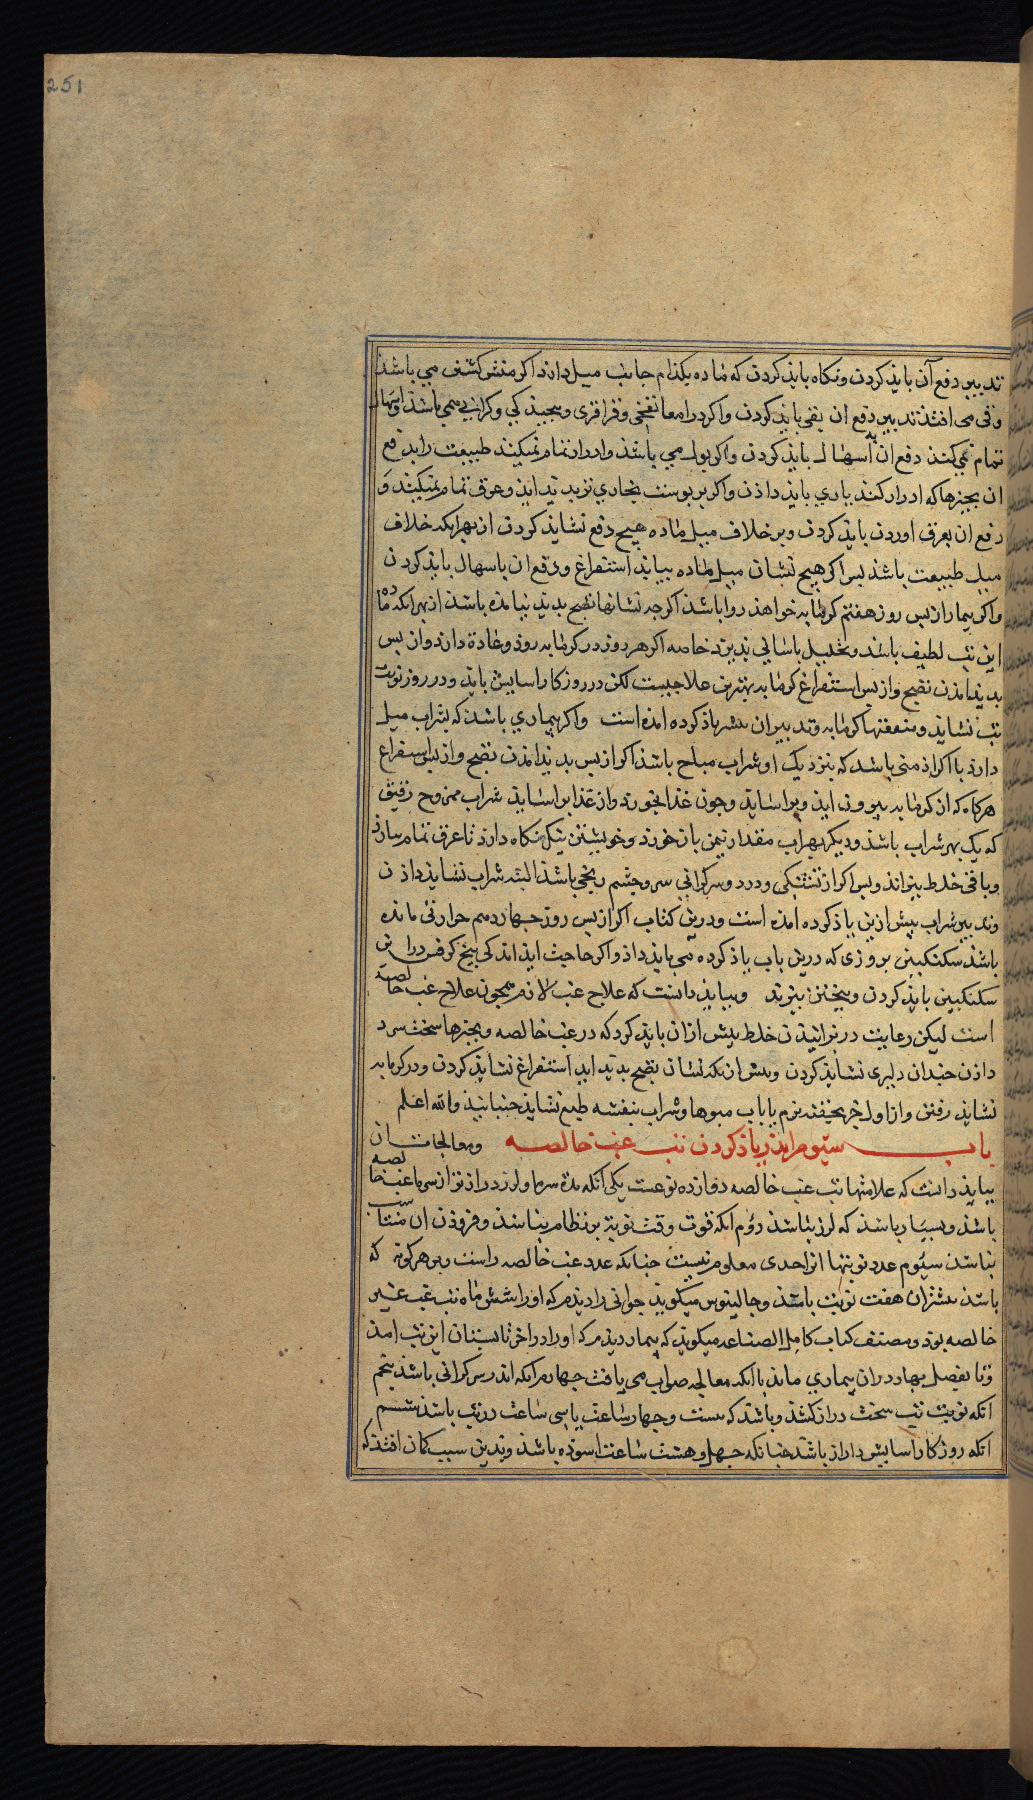 251
تدبیر دفع آن بایذ کردن و نکاه بایذ کردن که ماده بکذام جانب میل دارد اکر منش کشتن می باشذ
و قی می افتذ تدبیر دفع ان بقی بایذ کردن واکر در امعا نفخی و قراقری و پیچیذکی و کرانی همی باشذ و اسهال
تمام نمی کنذ دفع ان باسهال بایذ کردن واکر بول می باشذ وادرار تمام نمیکنذ طبیعت را بدفع
ان بجیزها که ادرار کند یاری بایذ داذن واکر بر پوست بخاری تر پدید ایذ وعرق تمام نمیکنذ و
دفع ان بعرق اوردن بایذ کردن وبر خلاف میل ماده هیچ دفع نشایذ کردن از بهر انکه خلاف
میل طبیعت باشذ پس اکر هیچ نشان میل ماده نیابد استفراغ و دفع ان باسهال بایذ کردن
واکر بیمار از پس روز هفتم کرمابه خواهذ روا باشذ اکرجه نشانها نضج پدید نیامذه باشذ از بهر انکه ماده
این تب لطیف باشد و تحلیل باسانی پذیرد خاصه اکر هر روز در کرمابه روذ و عادة دارد و از پس
پدید امذن نضج واز پس استفراغ کرمابه بهترین علاجیست لکن در روزکار اسایش بایذ و در روز نوبت
تب نشاید و منفعتها کرمابه و تدبیر ان پیشتر یاذ کرده امذه است واکر بیماری باشذ که بشراب میل
دارد یا اکر از منی باشد که بنزدیک او شراب مباح باشذ اکر از پس پدید امذن نضج واز پس استفراغ
هرکاه که از کرمابه بیرون ایذ و براسایذ وجون غذا بخورد واز غذا براسایذ شراب ممزوج رقیق
که یک بهر شراب باشذ و دیکر بهر اب مقدار نیمن باز خورد و خویشتن نیک نکاه دارد تا عرق تمام بیارد
و باقی خلط بپزاند و پس اکر از تشنکی و درد و سرکرانی سر و چشم رنجی باشذ البته شراب نشایذ داذن
و تدبیر شراب پیش ازین یاذ کرده امذه است و درین کتاب اکر از پس روز جهاردهم حرارتی مانده
باشذ سکنکبین بزوری که درین باب یاذ کرده می ایذ بایذ داذ واکر حاجت ایذ اندکی بیخ کرفس در این
سکنکبین بایذ کردن و بیختن بپزند و ببایذ دانست که علاج غب لازم همجون علاج غب خالصه
است لیکن رعایت در پزانیذن خلط بیش از ان بایذ کرد که در غب خالصه و بجیزها سخت سرد
داذن جندان دلیری نشایذ کردن و پیش از انکه نشان نضج پدید ایذ استفراغ نشایذ کردن و در کرمابه
نشایذ رفتن واز اول جز بحقنه نرم یا باب میوها و شراب بنفشه طبع نشایذ جنبانیذ والله اعلم
باب سیوم اندر یاذ کردن تب غب خالصه ومعالجات ان
ببایذ دانست که علامتها تب غب خالصه دوازده نوعست یکی آنکه مدة سرما و لرز دراز تر از سرما غب خالصه
باشذ و بسیار باشذ که لرز نباشذ دوم انکه قوت وقت نوبة بر نظام نباشذ و فزوذن ان متناسب
نباشذ سیوم عدد نوبتها انرا حدی معلوم نیست جنانکه عدد غب خالصه راست و بر هر کونه که
باشذ بیشتر ان هفت نوبت باشذ و جالینوس میکویذ جوانی را دیذم که اورا شش ماه تب غب غیر
خالصه بوذ و مصنف کتاب کامل الصناعه میکویذ که بیمار دیذم که اورا در اخر تابستان این تب امذ
و تا بفصل بهار در ان بیماری ماند با انکه معالجه صواب می یافت جهارم انکه اندر سر کرانی باشذ پنجم
انکه نوبت تب سخت دراز کشذ و باشذ که بیست و جهار ساعت یا سی ساعت در تب باشذ ششم
انکه روزکار اسایش دراز باشذ جنانکه جهل و هشت ساعت اسوذه باشذ و بدین سبب کمان افتذ که